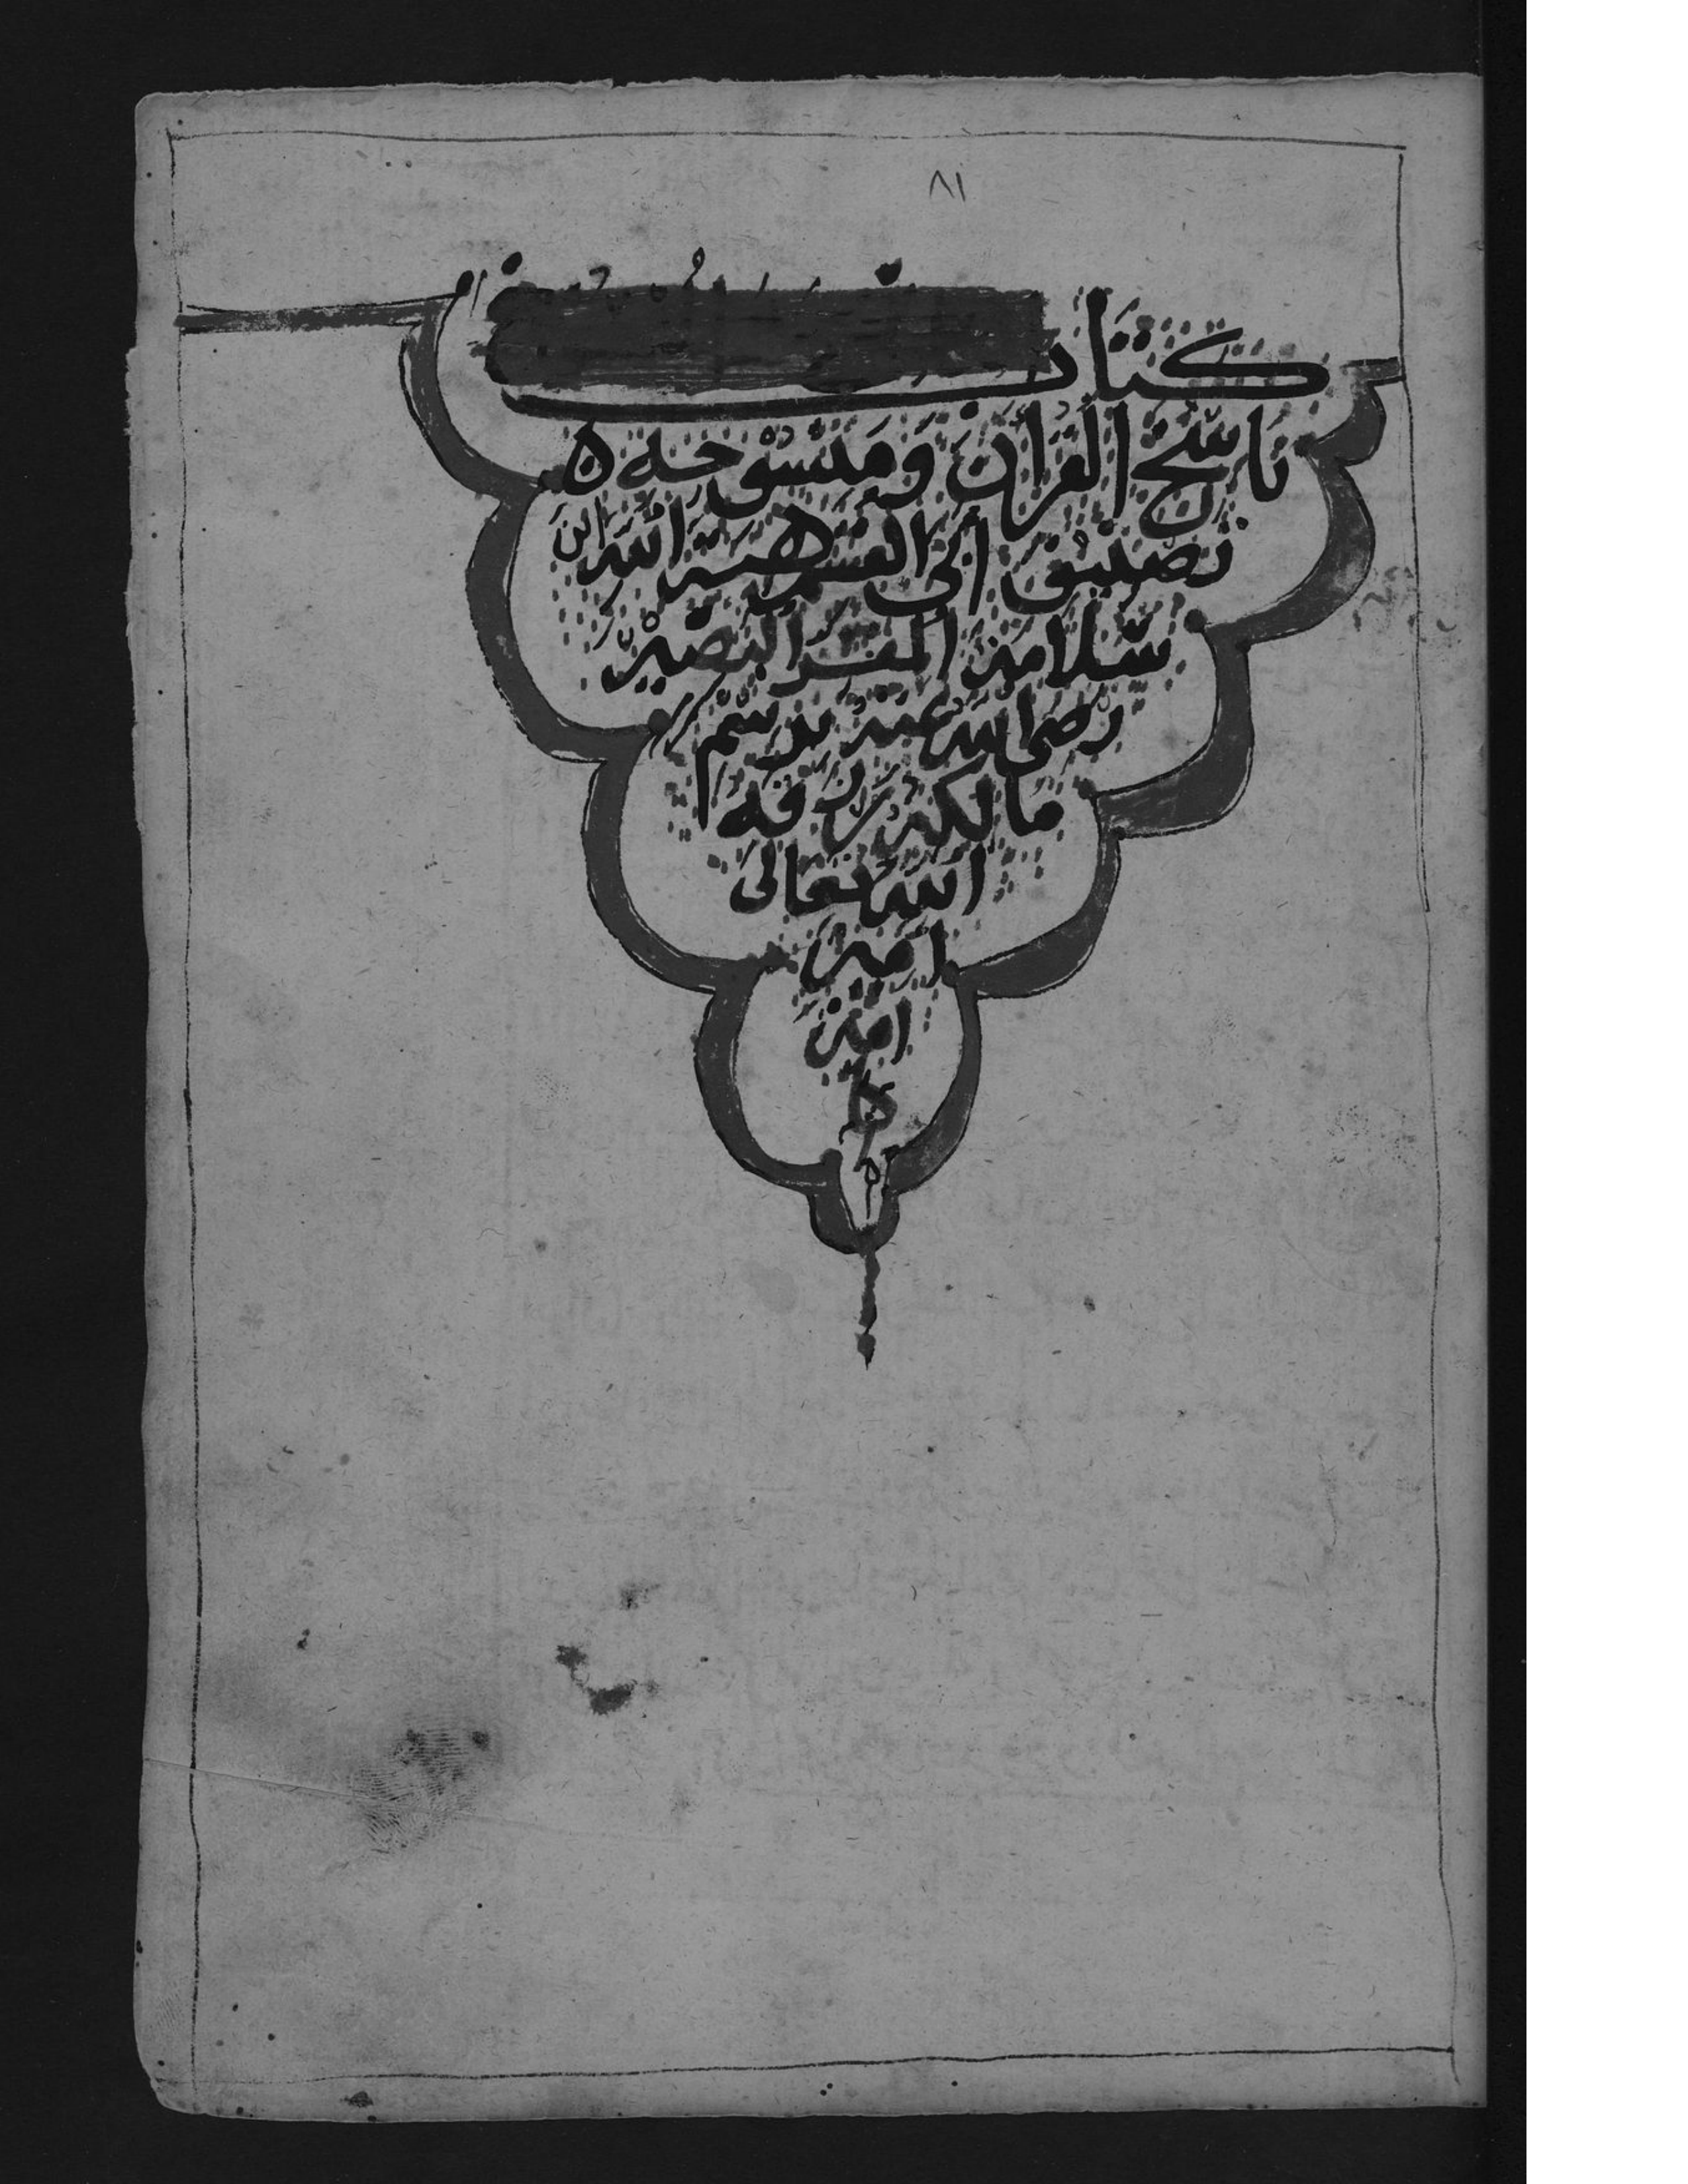 ٨١
كتاب
ناسخ القرآن ومنسوخه
تصنيف ابى القسم هبة الله ابن
سلامه المفسر البصير
رضى الله عنه برسم
مالكه
الله تعالى
امين
امين